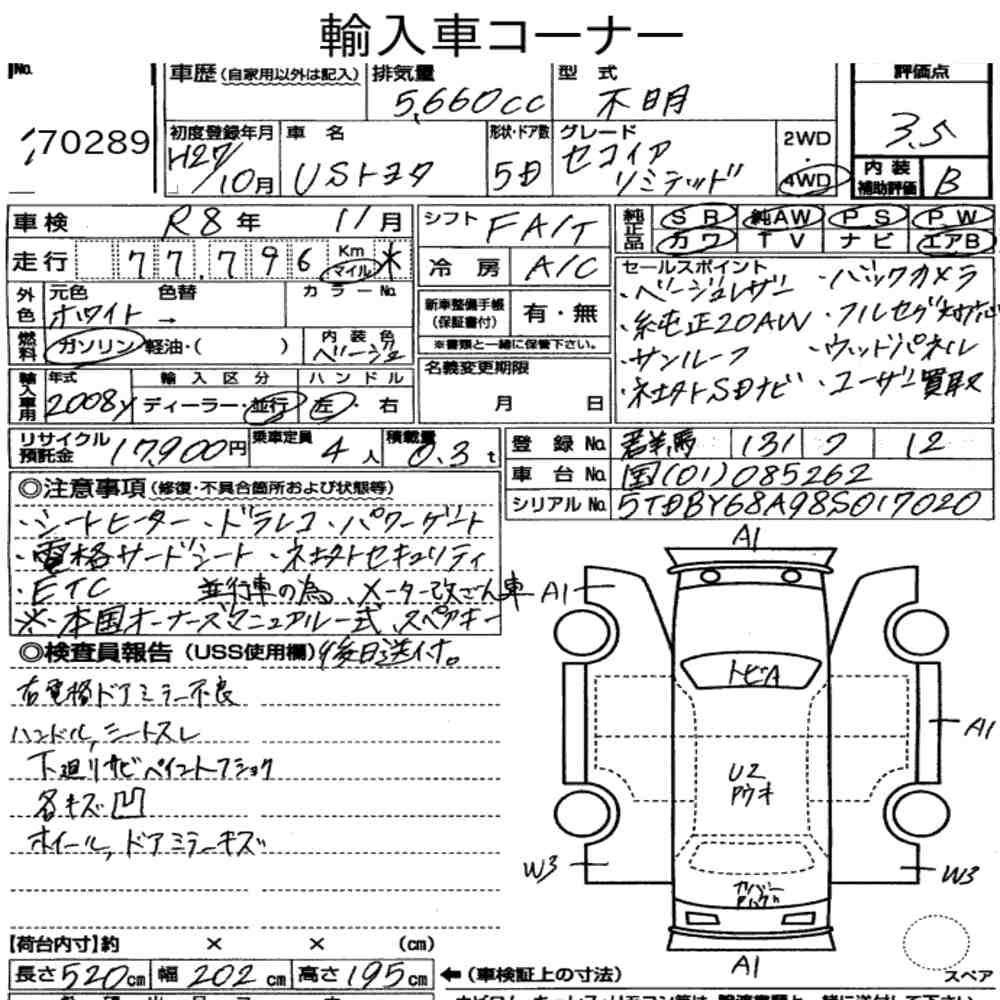 輸入車コーナー
No. 車歴 (自家用以外は記入) 排気量 型式 評価点
5,660cc 不明 3.5
170289 初度登録年月 車名 形状・ドア数 グレード 2WD
H27/10月 USトヨタ 5D セコイア リミテッド 4WD 内装補助評価 B
車検 R8年 11月 シフト FA/T 純正品 SR 純AW PS PW
カワ TV ナビ エアB
走行 77.796 Km マイル 冷房 A/C
セールスポイント
・ベージュレザー ・バックカメラ
外色 元色 色替 カラーNo. 新車整備手帳 (保証書付) 有・無
ホワイト →
・純正20AW ・フルセグ対応
燃料 ガソリン 軽油・( ) 内装色 ベージュ ※書類と一緒に保管下さい。
・サンルーフ ・ウッドパネル
輸入車用 年式 輸入区分 ハンドル 名義変更期限
2008y ディーラー・並行 左・右 月 日
・社外SDナビ ・ユーザー買取
リサイクル預託金 17,900円 乗車定員 4人 積載量 0.3t
登録No. 131 12
車台No. 国(01)085262
シリアルNo. 5TDBY68A98S017020
◎注意事項 (修復・不具合箇所および状態等)
・シートヒーター ・ドラレコ ・パワーゲート
・電格サードシート ・社外セキュリティ
・ETC 並行車の為、メーター改ざん車
※本国オーナーズマニュアル一式、スペアキー
後日送付。
◎検査員報告 (USS使用欄)
右電格ドアミラー不良
ハンドル,シートスレ
下廻りサビペイントフショク
各キズ凹
ホイール,ドアミラーキズ
A1
A1
トビA
A1
U2
Pウキ
W3
W3
A1
スペア
【荷台内寸】約 × × (cm)
長さ520cm 幅202cm 高さ195cm ←(車検証上の寸法)